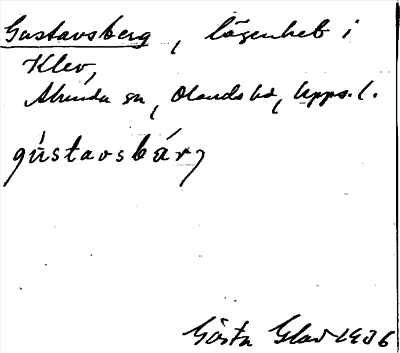 Gustavsberg, lägenhet i
Klev,
Alunda sn, Olands hd, Upps. l.
gústavsbárj
Gösta Glad 1936